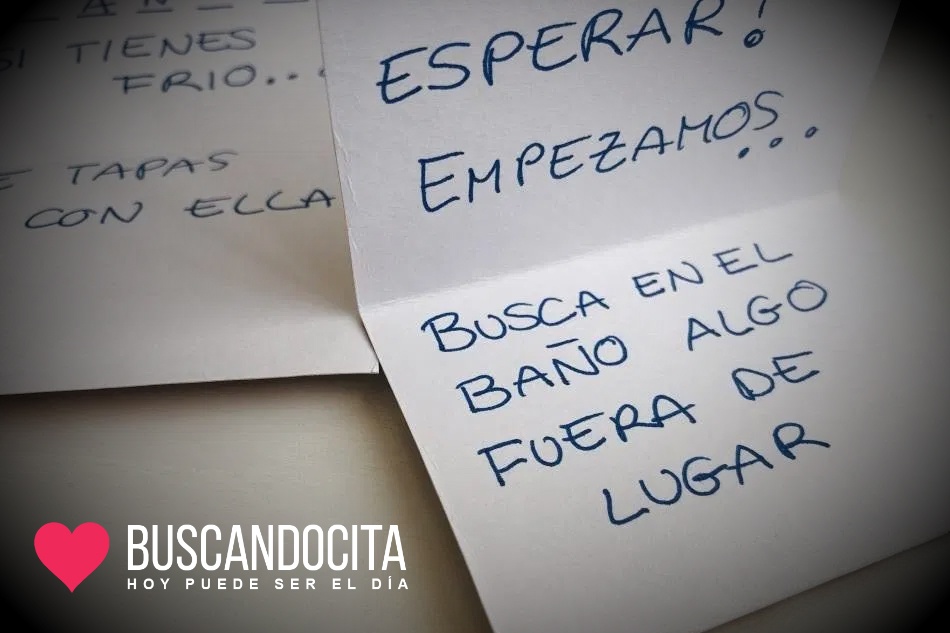 SI TIENES
FRIO...
TAPAS
CON ELLA
ESPERAR!
EMPEZAMOS...
BUSCA EN EL
BAÑO ALGO
FUERA DE
LUGAR
BUSCANDOCITA
HOY PUEDE SER EL DÍA